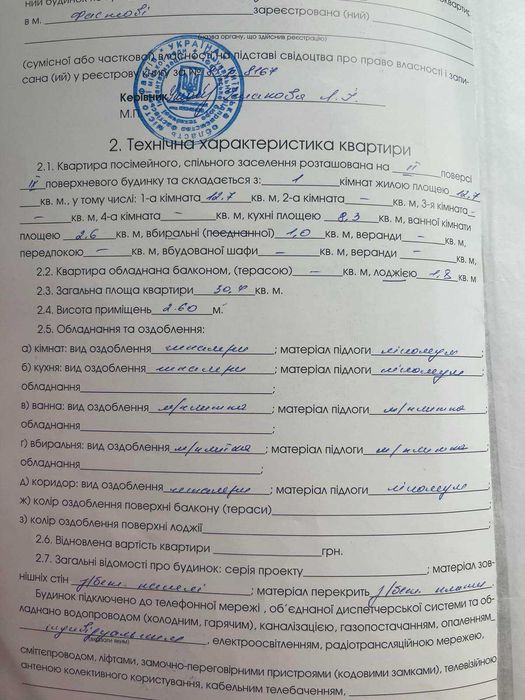 в м. Фастові зареєстрована (ний)
(назва органу, що здійснив реєстрацію)
(сумісної або часткової власності) на підставі свідоцтва про право власності і запи-
сана (ий) у реєстрову книгу за №
Керівник
М.П.
2. Технічна характеристика квартири
2.1. Квартира посімейного, спільного заселення розташована на ІІ поверсі
ІІ поверхневого будинку та складається з: 1 кімнат жилою площею 12,7
кв. м., у тому числі: 1-а кімната 12,7 кв. м, 2-а кімната – кв. м, 3-я кімната –
– кв. м, 4-а кімната – кв. м, кухні площею 8,3 кв. м, ванної кімнати
площею 2,6 кв. м, вбиральні (поєднанної) 1,0 кв. м, веранди – кв. м,
передпокою – кв. м, вбудованої шафи – кв. м, веранди – кв. м,
2.2. Квартира обладнана балконом, (терасою) – кв. м, лоджією 1,8 кв. м
2.3. Загальна площа квартири 30,7 кв. м.
2.4. Висота приміщень 2.60 м.
2.5. Обладнання та оздоблення:
а) кімнат: вид оздоблення шпалери; матеріал підлоги лінолеум;
б) кухня: вид оздоблення шпалери; матеріал підлоги лінолеум;
обладнання ;
в) ванна: вид оздоблення м/плитка; матеріал підлоги м/плитка;
обладнання ;
г) вбиральня: вид оздоблення м/плитка; матеріал підлоги м/плитка;
обладнання ;
д) коридор: вид оздоблення шпалери; матеріал підлоги лінолеум;
ж) колір оздоблення поверхні балкону (тераси) ;
з) колір оздоблення поверхні лоджії
2.6. Відновлена вартість квартири грн.
2.7. Загальні відомості про будинок: серія проекту ; матеріал зов-
нішніх стін з/бет. панелі; матеріал перекрить з/бет. плити.
Будинок підключено до телефонної мережі, об'єднаної диспетчерської системи та об-
ладнано водопроводом (холодним, гарячим), каналізацією, газопостачанням, опаленням
індивідуальним, електроосвітленням, радіотрансляційною мережею,
сміттєпроводом, ліфтами, замочно-переговорними пристроями (кодовими замками), телевізійною
антеною колективного користування, кабельним телебаченням,